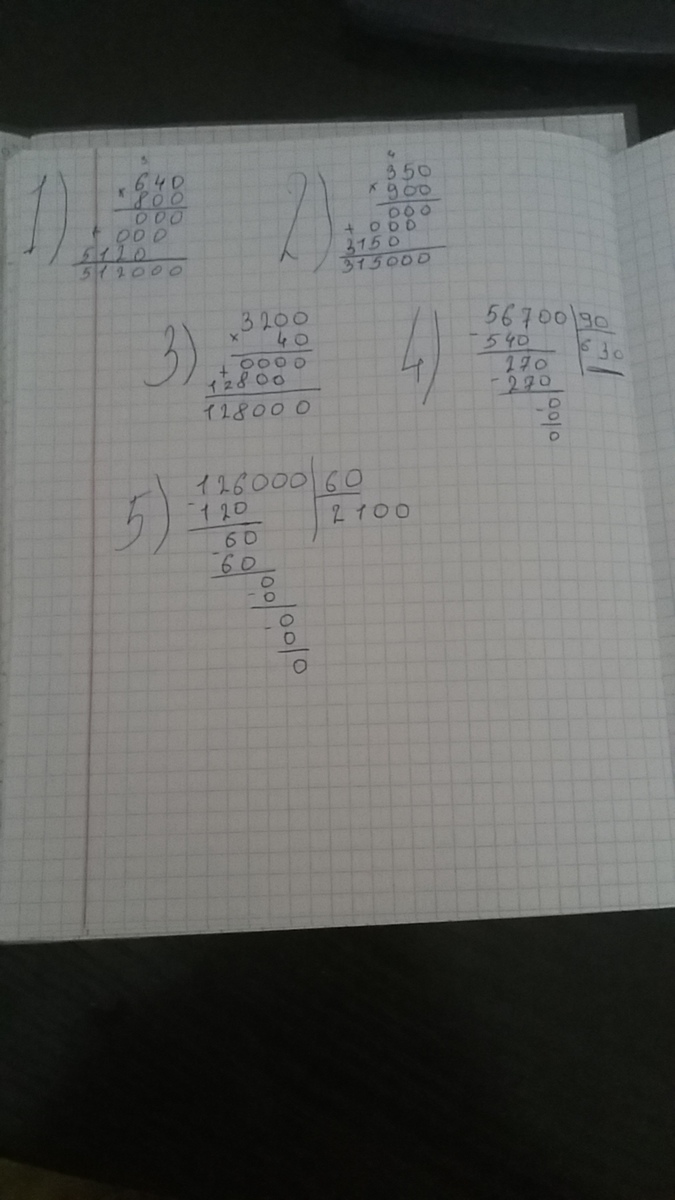 1)
3
640
× 800
000
+ 000
5120
512000
2)
4
350
× 900
000
+ 000
3150
315000
3)
3200
× 40
0000
+
12800
128000
4)
56700 | 90
- 540 | 630
270
- 270
0
- 0
0
5)
126000 | 60
- 120 | 2100
60
- 60
0
- 0
- 0
0
0